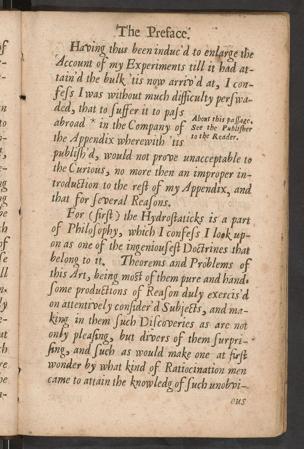 The Preface.
Having thus been induc'd to enlarge the
Account of my Experiments till it had at-
tain'd the bulk 'tis now arriv'd at, I con-
fess I was without much difficulty perswa-
ded, that to suffer it to pass
abroad * in the Company of
the Appendix wherewith 'tis
About this passage,
See the Publisher
to the Reader.
publish'd, would not prove unacceptable to
the Curious, no more then an improper in-
troduction to the rest of my Appendix, and
that for several Reasons.
For (first) the Hydrostaticks is a part
of Philosophy, which I confess I look up-
on as one of the ingeniousest Doctrines that
belong to it. Theorems and Problems of
this Art, being most of them pure and hand-
some productions of Reason duly exercis'd
on attentively consider'd Subjects, and ma-
king in them such Discoveries as are not
only pleasing, but divers of them surpri-
sing, and such as would make one at first
wonder by what kind of Ratiocination men
came to attain the knowledg of such unobvi-
ous